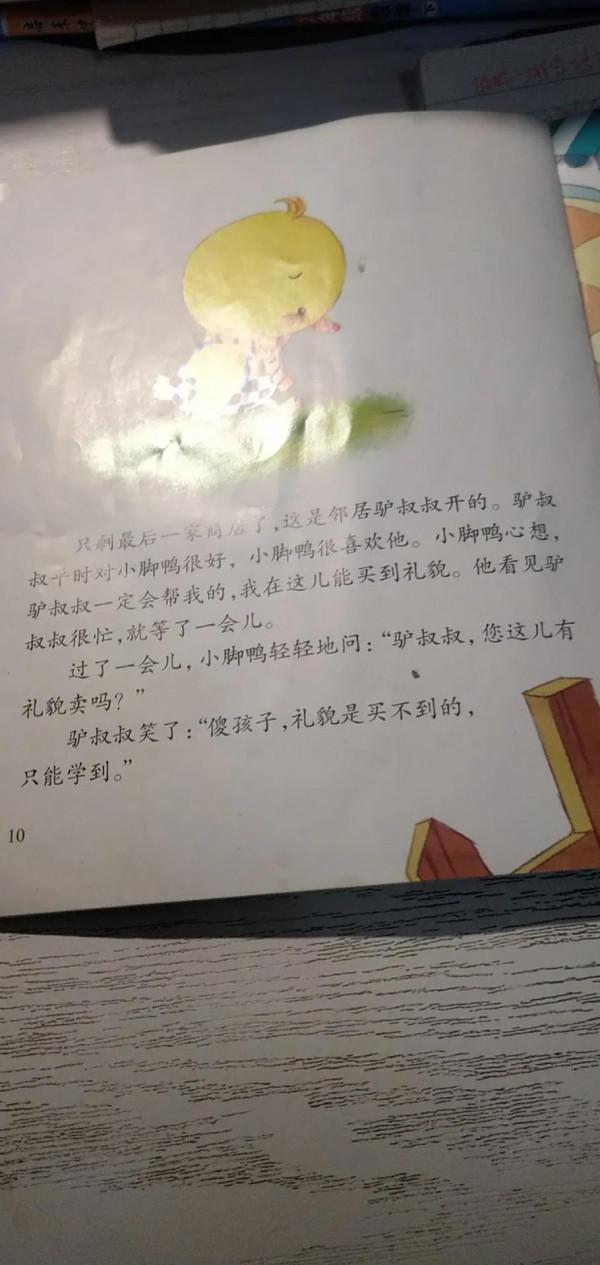 只剩最后一家商店了，这是邻居驴叔叔开的。驴叔
叔平时对小脚鸭很好，小脚鸭很喜欢他。小脚鸭心想，
驴叔叔一定会帮我的，我在这儿能买到礼貌。他看见驴
叔叔很忙，就等了一会儿。
过了一会儿，小脚鸭轻轻地问：“驴叔叔，您这儿有
礼貌卖吗？”
驴叔叔笑了：“傻孩子，礼貌是买不到的，
只能学到。”
10